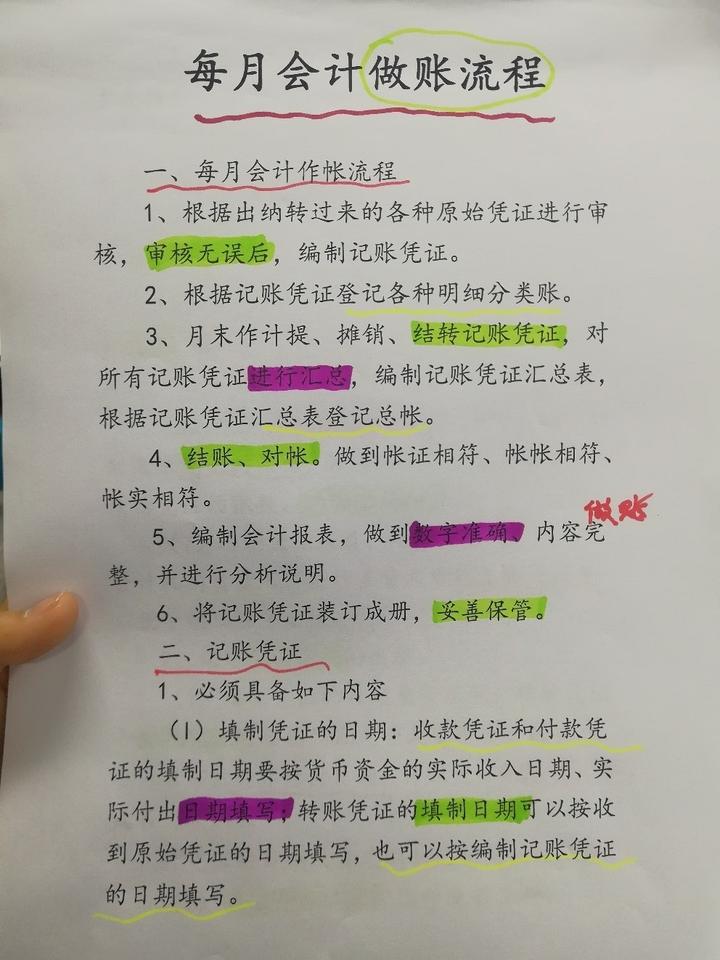 每月会计做账流程
一、每月会计作帐流程
1、根据出纳转过来的各种原始凭证进行审
核，审核无误后，编制记账凭证。
2、根据记账凭证登记各种明细分类账。
3、月末作计提、摊销、结转记账凭证，对
所有记账凭证进行汇总，编制记账凭证汇总表，
根据记账凭证汇总表登记总帐。
4、结账、对帐。做到帐证相符、帐帐相符、
帐实相符。
做账
5、编制会计报表，做到数字准确、内容完
整，并进行分析说明。
6、将记账凭证装订成册，妥善保管。
二、记账凭证
1、必须具备如下内容
（1）填制凭证的日期：收款凭证和付款凭
证的填制日期要按货币资金的实际收入日期、实
际付出日期填写；转账凭证的填制日期可以按收
到原始凭证的日期填写，也可以按编制记账凭证
的日期填写。